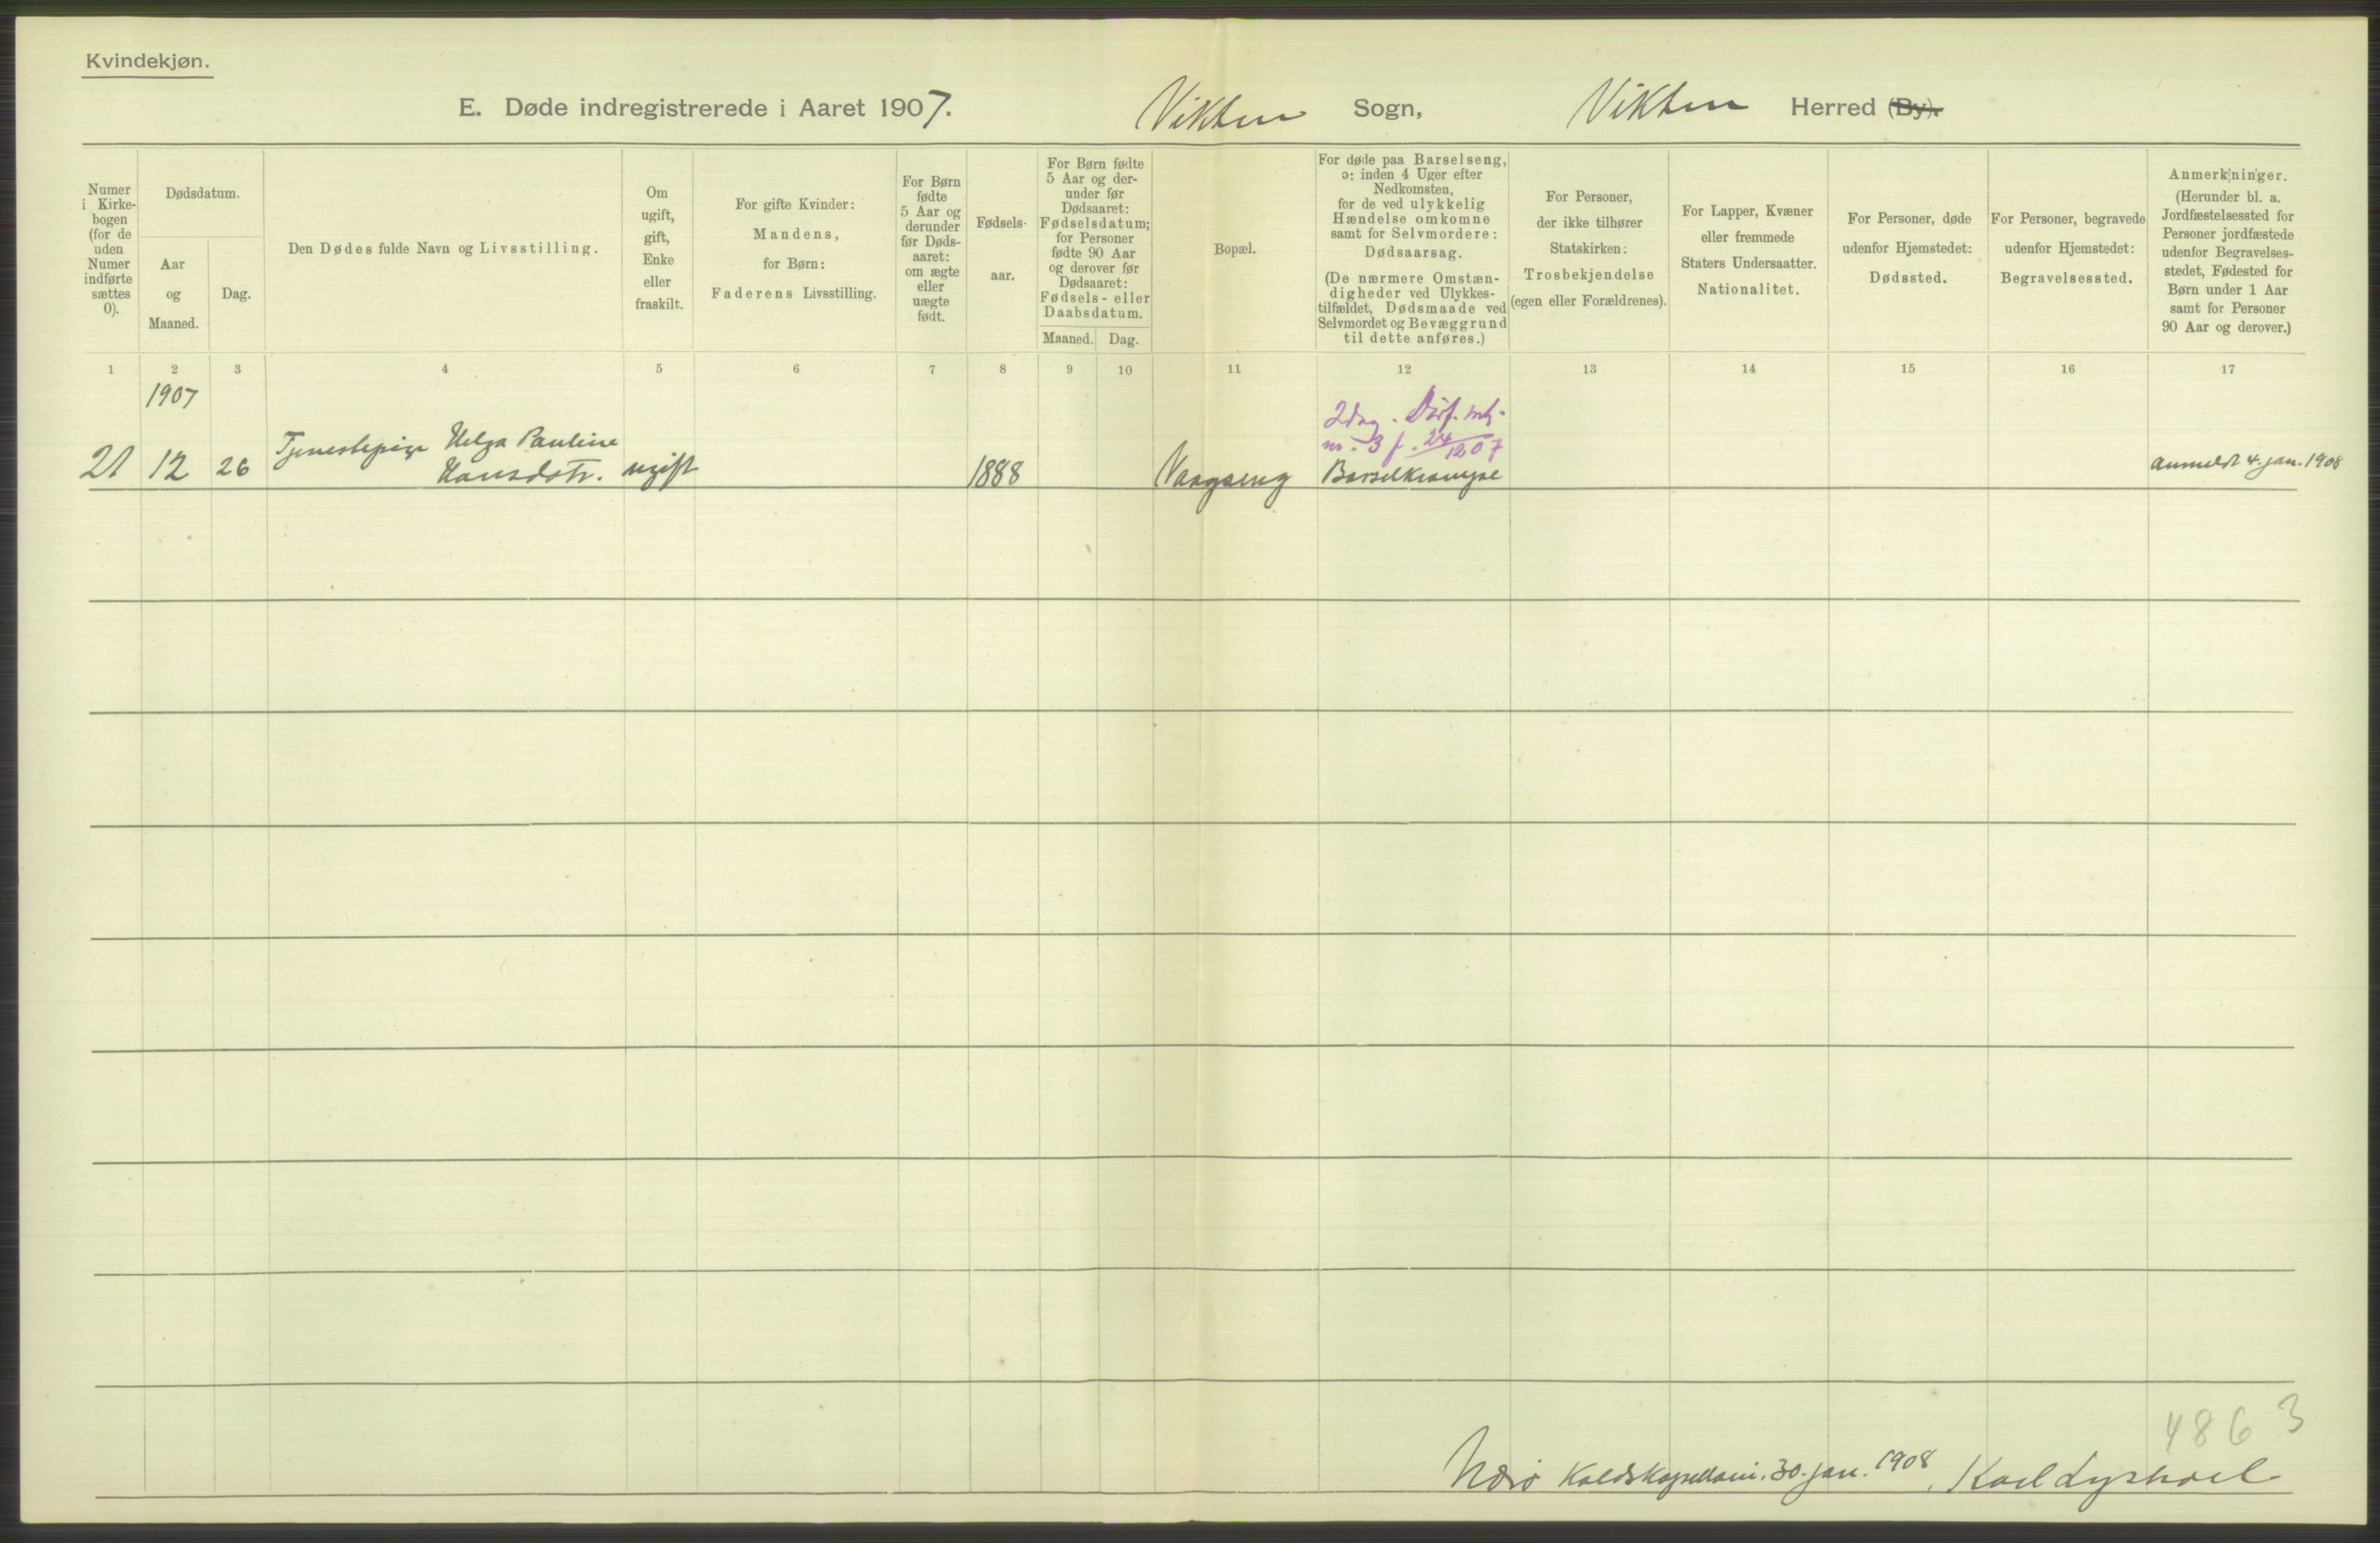 Kvindekjøn.
E. Døde indregistrerede i Aaret 1907. Vikten Sogn, Vikten Herred (By).
Numer
i Kirke-
bogen
(for de
uden
Numer
indførte
sættes
0).
Dødsdatum.
Aar
og
Maaned.
Dag.
Den Dødes fulde Navn og Livsstilling.
Om
ugift,
gift,
Enke
eller
fraskilt.
For gifte Kvinder:
Mandens,
for Børn:
Faderens Livsstilling.
For Børn
fødte
5 Aar og
derunder
før Døds-
aaret:
om ægte
eller
uægte
født.
Fødsels-
aar.
For Børn fødte
5 Aar og der-
under før
Dødsaaret:
Fødselsdatum;
for Personer
fødte 90 Aar
og derover før
Dødsaaret:
Fødsels- eller
Daabsdatum.
Maaned. Dag.
Bopæl.
For døde paa Barselseng,
ɔ: inden 4 Uger efter
Nedkomsten,
for de ved ulykkelig
Hændelse omkomne
samt for Selvmordere:
Dødsaarsag.
(De nærmere Omstæn-
digheder ved Ulykkes-
tilfældet, Dødsmaade ved
Selvmordet og Bevæggrund
til dette anføres.)
For Personer,
der ikke tilhører
Statskirken:
Trosbekjendelse
(egen eller Forældrenes).
For Lapper, Kvæner
eller fremmede
Staters Undersaatter.
Nationalitet.
For Personer, døde
udenfor Hjemstedet:
Dødssted.
For Personer, begravede
udenfor Hjemstedet:
Begravelsessted.
Anmerkninger.
(Herunder bl. a.
Jordfæstelsessted for
Personer jordfæstede
udenfor Begravelses-
stedet, Fødested for
Børn under 1 Aar
samt for Personer
90 Aar og derover.)
1 2 3 4 5 6 7 8 9 10 11 12 13 14 15 16 17
1907
2 dag.
nr. 3 f. 24/12 07
Tjenestepige Helga Pauline
21 12 26 Hansdotr. ugift 1888 Vaagseng Barselkrampe anmeldt 4. jan. 1908
4863
Nærø 30. jan. 1908, Karl Lyshoel